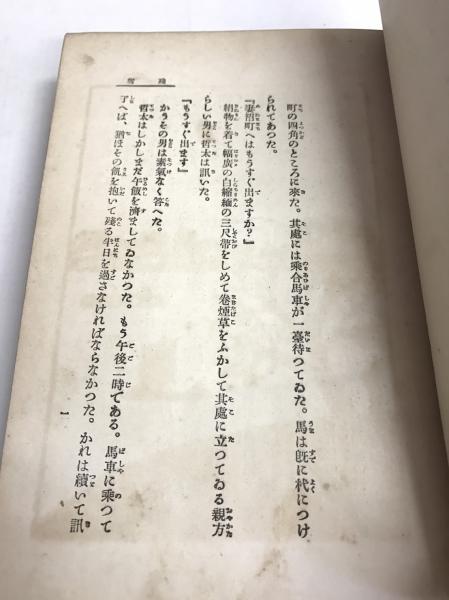 残雪
町の四角のところに來た。其處には乘合馬車が一臺待つてゐた。馬は既に杙につけ
られてあつた。
『妻沼町へはもうすぐ出ますか？』
絹物を着て幅廣の白縮緬の三尺帶をしめて卷煙草をふかして其處に立つてゐる親方
らしい男に哲太は訊いた。
『もうすぐ出ます』
かうその男は素氣なく答へた。
哲太はしかしまだ午飯を濟ましてゐなかつた。もう午後二時である。馬車に乘つて
了へば、猶ほその飢を抱いて殘る半日を過さなければならなかつた。かれは續いて訊
一